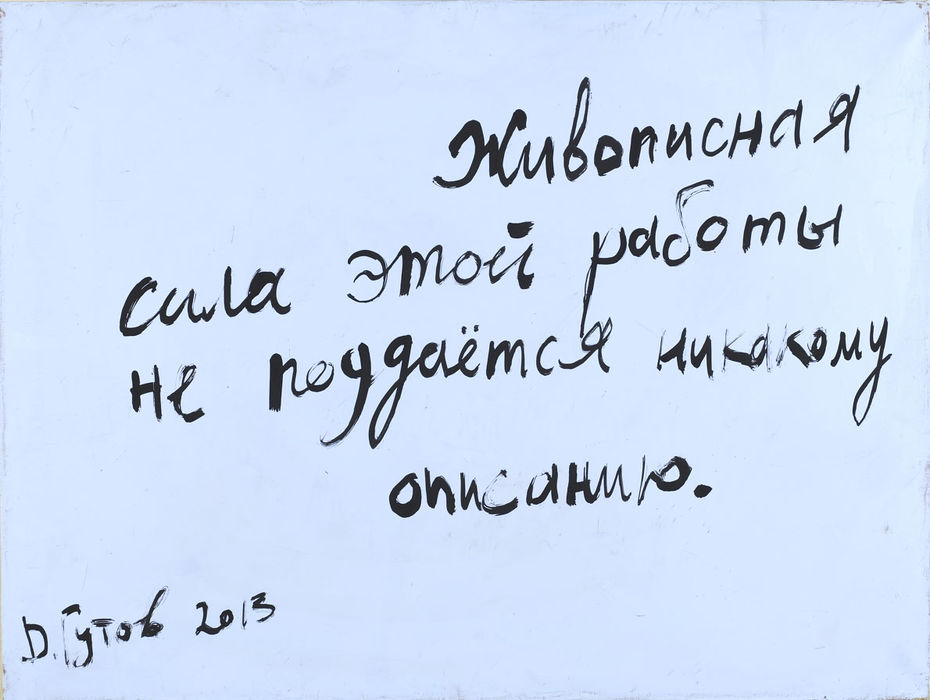 Живописная
сила этой работы
не поддаётся никакому
описанию.
D. Гутов 2013